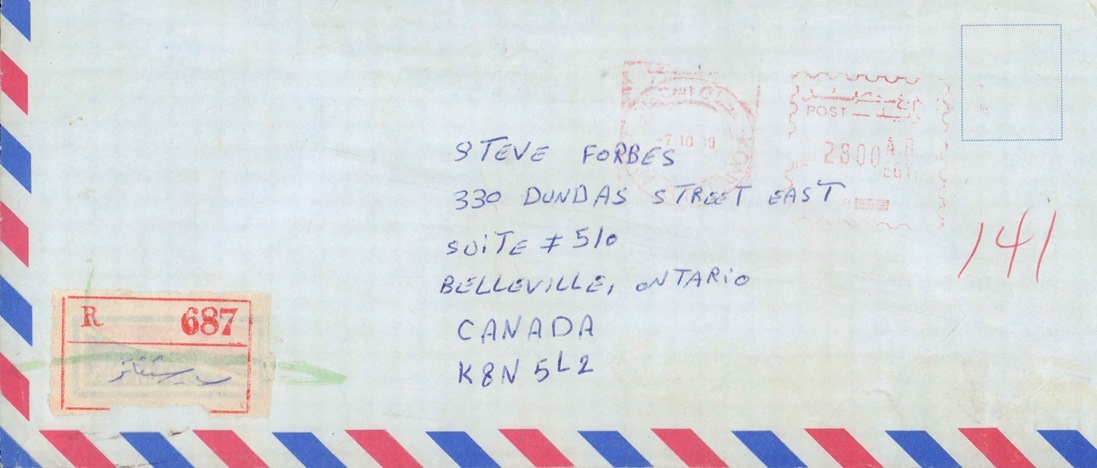 POST
2800
-7 10
STEVE FORBES
330 DUNDAS STREET EAST
SUITE # 510
BELLEVILLE, ONTARIO
CANADA
K8N 5L2
141
R 687